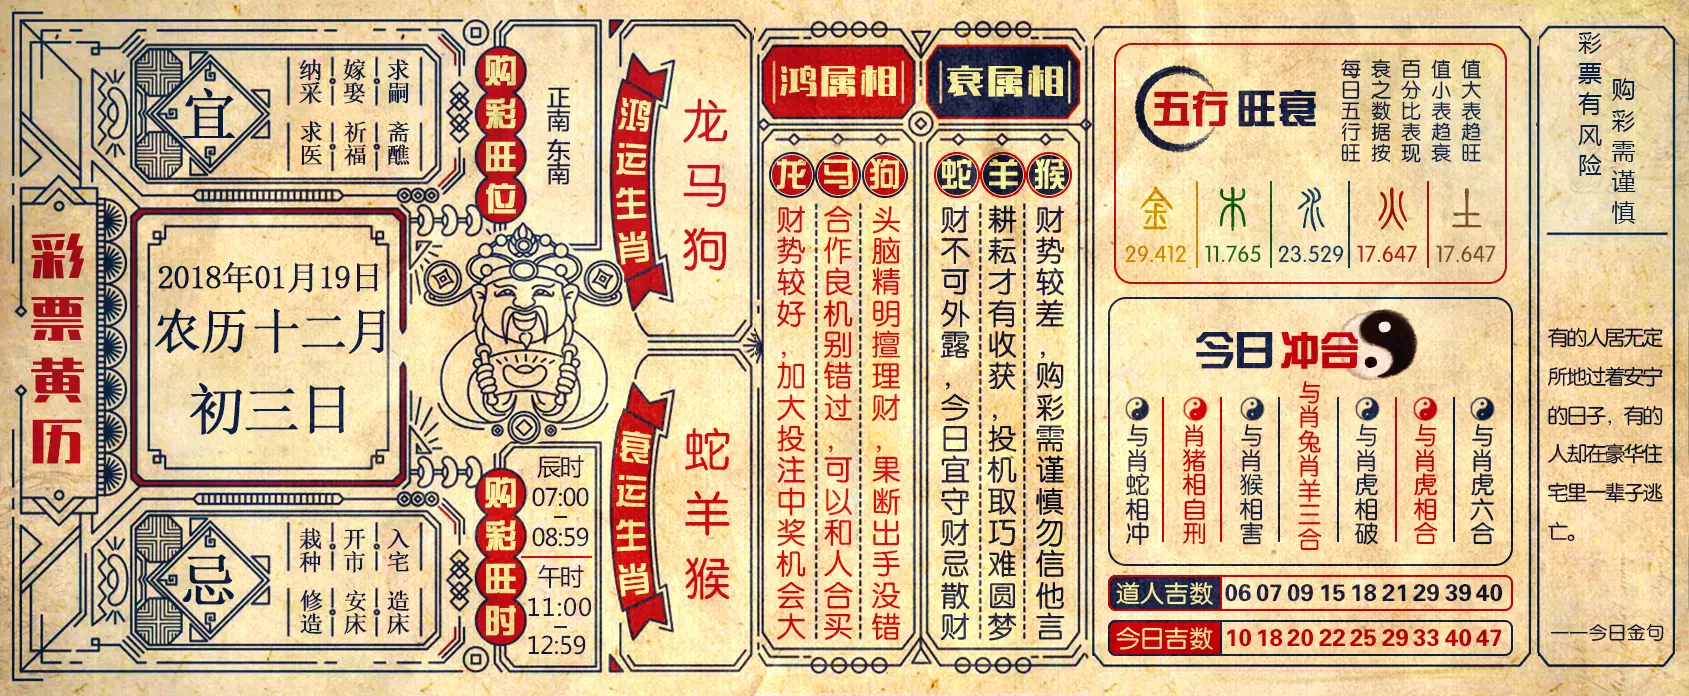 彩票黄历
宜
纳采 嫁娶 求嗣
求医 祈福 斋醮
2018年01月19日
农历十二月
初三日
忌
栽种 开市 入宅
修造 安床 造床
购彩旺位
正南 东南
购彩旺时
辰时
07:00
–
08:59
午时
11:00
–
12:59
鸿运生肖
龙
马
狗
衰运生肖
蛇
羊
猴
鸿属相
龙
财势较好，加大投注中奖机会大
马
合作良机别错过，可以和人合买
狗
头脑精明擅理财，果断出手没错
衰属相
蛇
财不可外露，今日宜守财忌散财
羊
耕耘才有收获，投机取巧难圆梦
猴
财势较差，购彩需谨慎勿信他言
五行旺衰
每日五行旺
衰之数据按
百分比表现
值小表趋衰
值大表趋旺
金 木 水 火 土
29.412 11.765 23.529 17.647 17.647
今日冲合
与肖蛇相冲
肖猪相自刑
与肖猴相害
与肖兔肖羊三合
与肖虎相破
与肖虎相合
与肖虎六合
道人吉数 06 07 09 15 18 21 29 39 40
今日吉数 10 18 20 22 25 29 33 40 47
彩票有风险
购彩需谨慎
有的人居无定
所地过着安宁
的日子，有的
人却在豪华住
宅里一辈子逃
亡。
——今日金句